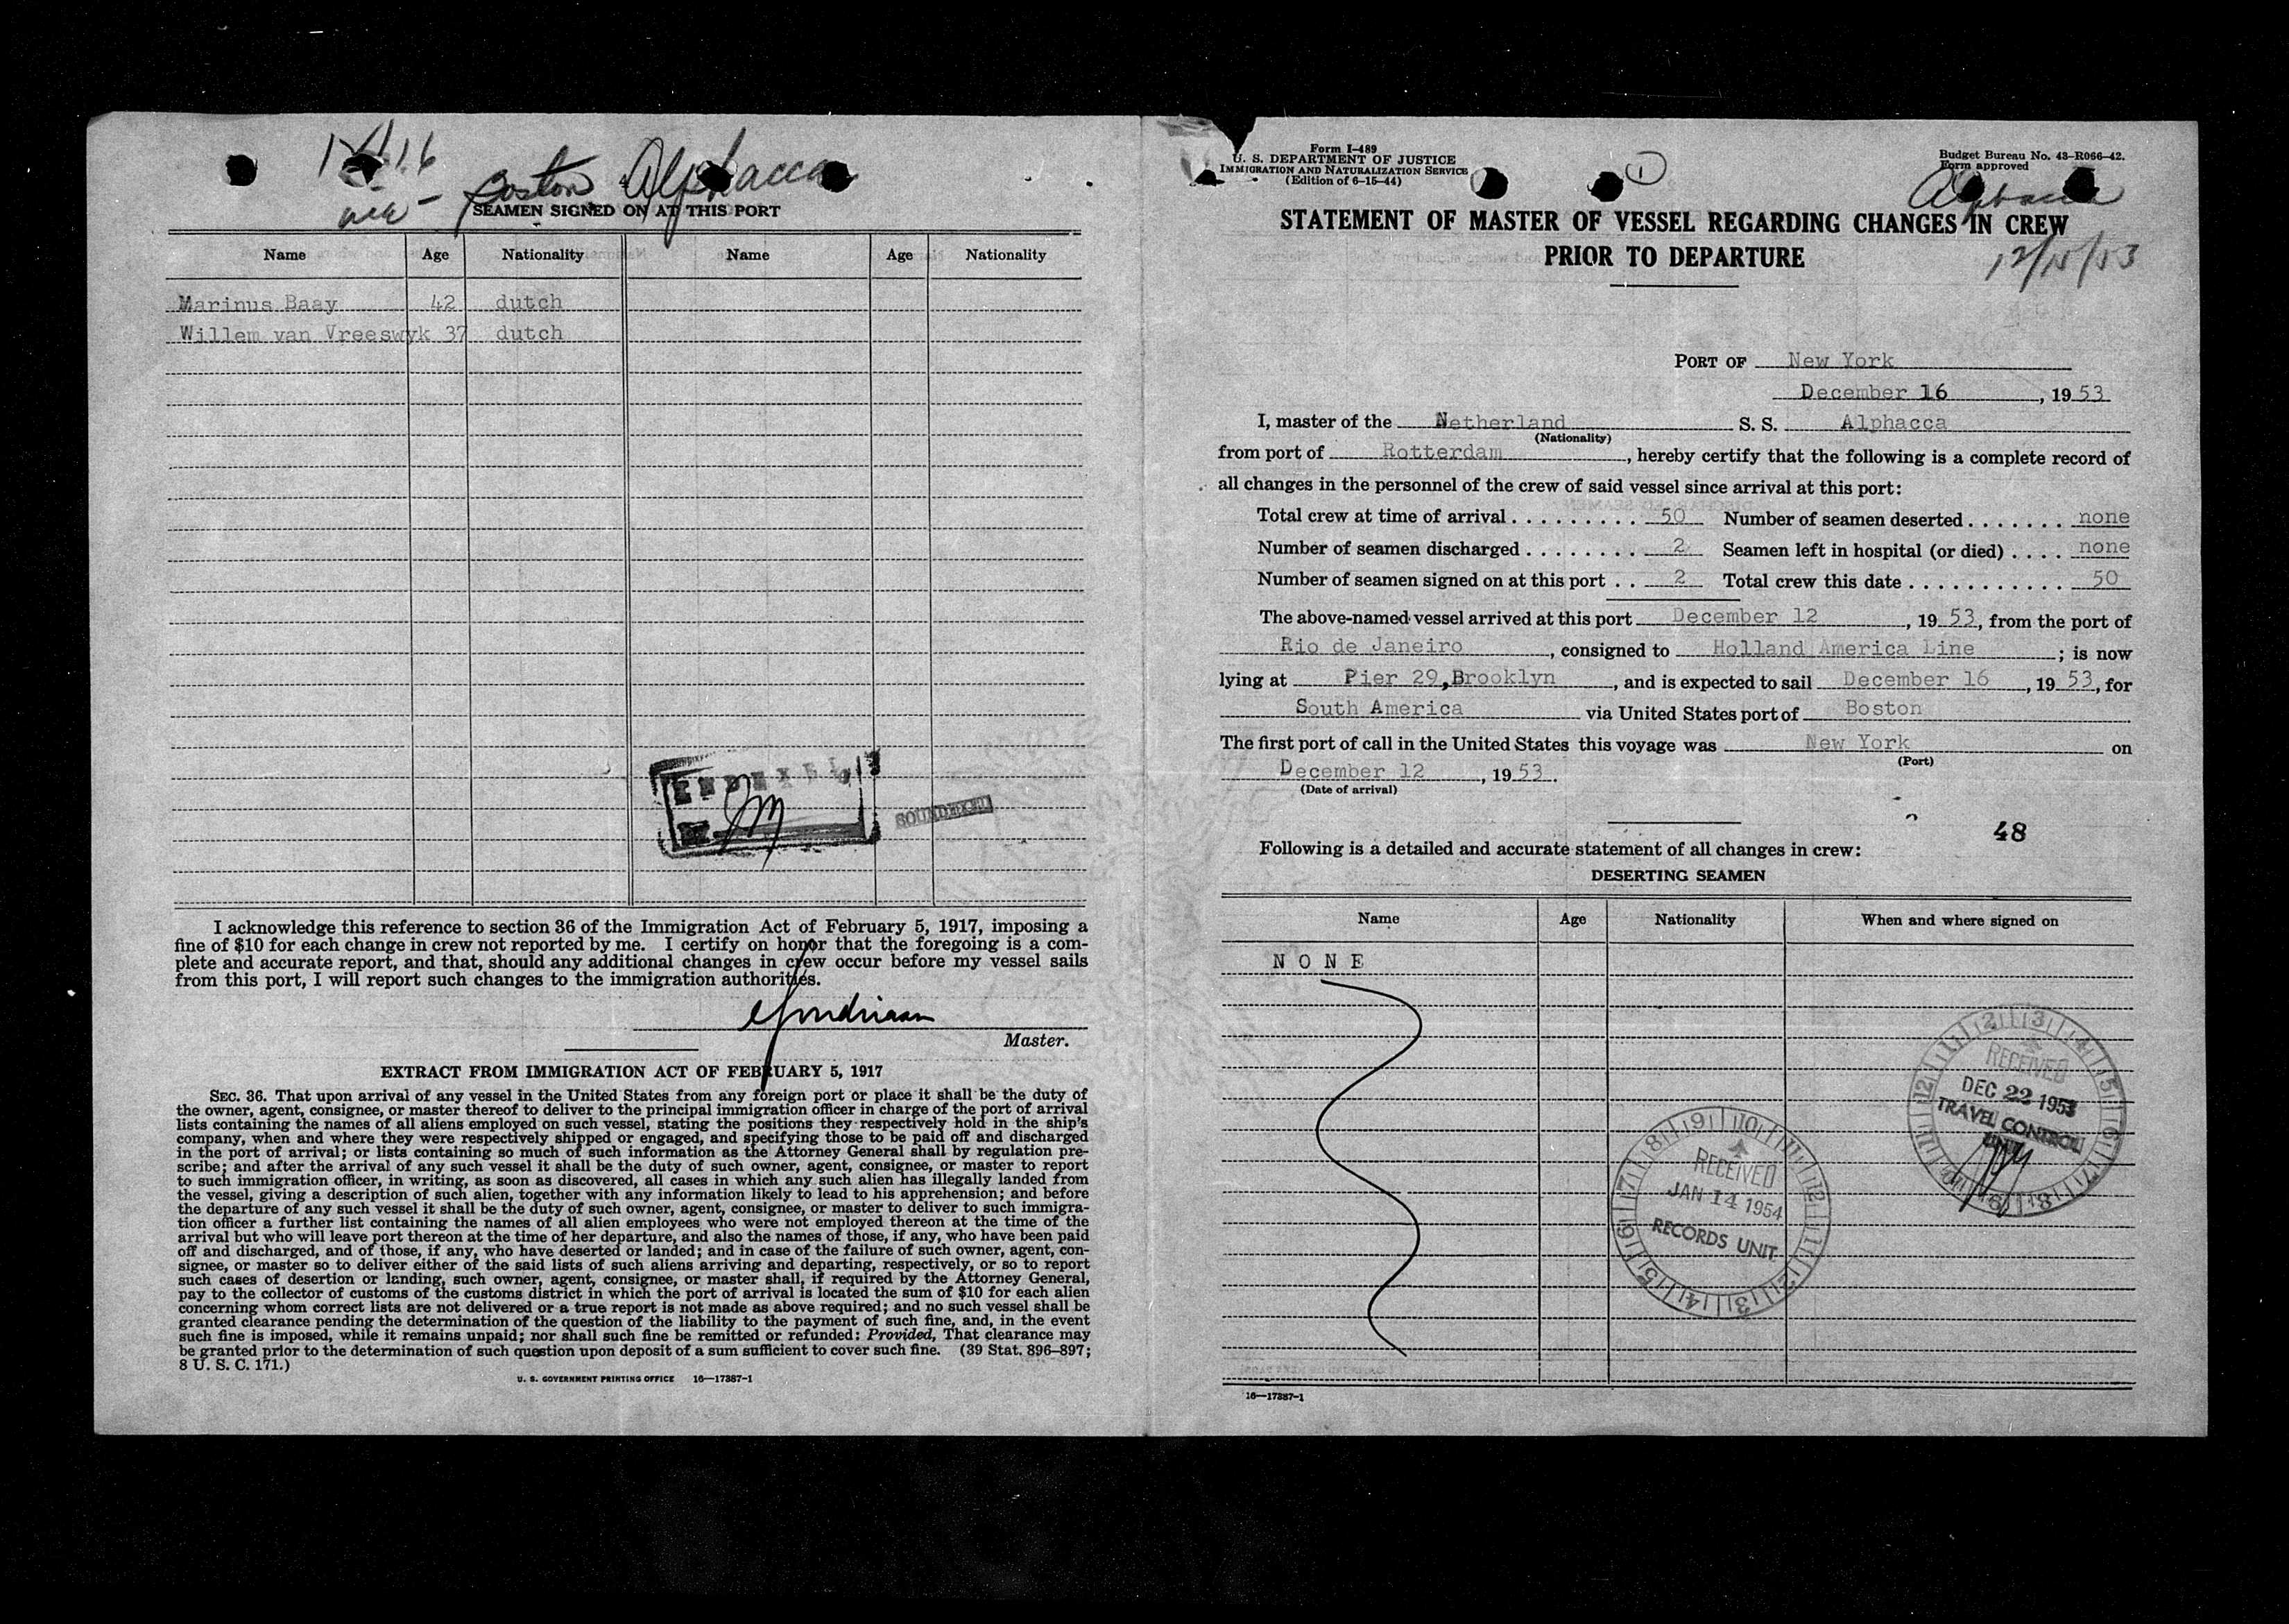 Boston Alphacca
SEAMEN SIGNED ON AT THIS PORT
Name Age Nationality Name Age Nationality
Marinus Baay 42 dutch
Willem van Vreeswyk 37 dutch
INDEXED
BY
SOUNDEXED
I acknowledge this reference to section 36 of the Immigration Act of February 5, 1917, imposing a
fine of $10 for each change in crew not reported by me. I certify on honor that the foregoing is a com-
plete and accurate report, and that, should any additional changes in crew occur before my vessel sails
from this port, I will report such changes to the immigration authorities.
Master.
EXTRACT FROM IMMIGRATION ACT OF FEBRUARY 5, 1917
SEC. 36. That upon arrival of any vessel in the United States from any foreign port or place it shall be the duty of
the owner, agent, consignee, or master thereof to deliver to the principal immigration officer in charge of the port of arrival
lists containing the names of all aliens employed on such vessel, stating the positions they respectively hold in the ship's
company, when and where they were respectively shipped or engaged, and specifying those to be paid off and discharged
in the port of arrival; or lists containing so much of such information as the Attorney General shall by regulation pre-
scribe; and after the arrival of any such vessel it shall be the duty of such owner, agent, consignee, or master to report
to such immigration officer, in writing, as soon as discovered, all cases in which any such alien has illegally landed from
the vessel, giving a description of such alien, together with any information likely to lead to his apprehension; and before
the departure of any such vessel it shall be the duty of such owner, agent, consignee, or master to deliver to such immigra-
tion officer a further list containing the names of all alien employees who were not employed thereon at the time of the
arrival but who will leave port thereon at the time of her departure, and also the names of those, if any, who have been paid
off and discharged, and of those, if any, who have deserted or landed; and in case of the failure of such owner, agent, con-
signee, or master so to deliver either of the said lists of such aliens arriving and departing, respectively, or so to report
such cases of desertion or landing, such owner, agent, consignee, or master shall, if required by the Attorney General,
pay to the collector of customs of the customs district in which the port of arrival is located the sum of $10 for each alien
concerning whom correct lists are not delivered or a true report is not made as above required; and no such vessel shall be
granted clearance pending the determination of the question of the liability to the payment of such fine, and, in the event
such fine is imposed, while it remains unpaid; nor shall such fine be remitted or refunded: Provided, That clearance may
be granted prior to the determination of such question upon deposit of a sum sufficient to cover such fine. (39 Stat. 896–897;
8 U. S. C. 171.)
U. S. GOVERNMENT PRINTING OFFICE 16—17387-1
Form I-489
U. S. DEPARTMENT OF JUSTICE
IMMIGRATION AND NATURALIZATION SERVICE
(Edition of 6-15-44)
1
Budget Bureau No. 43-R066-42.
Form approved
Alphacca
STATEMENT OF MASTER OF VESSEL REGARDING CHANGES IN CREW
PRIOR TO DEPARTURE
12/15/53
PORT OF New York
December 16, 1953
I, master of the Netherland S. S. Alphacca
(Nationality)
from port of Rotterdam, hereby certify that the following is a complete record of
all changes in the personnel of the crew of said vessel since arrival at this port:
Total crew at time of arrival . . . . . . . . . 50 Number of seamen deserted . . . . . . . none
Number of seamen discharged . . . . . . . . 2 Seamen left in hospital (or died) . . . . none
Number of seamen signed on at this port . . 2 Total crew this date . . . . . . . . . . . 50
The above-named vessel arrived at this port December 12, 1953, from the port of
Rio de Janeiro, consigned to Holland America Line; is now
lying at Pier 29, Brooklyn, and is expected to sail December 16, 1953, for
South America via United States port of Boston
The first port of call in the United States this voyage was New York on
(Port)
December 12, 1953.
(Date of arrival)
48
Following is a detailed and accurate statement of all changes in crew:
DESERTING SEAMEN
Name Age Nationality When and where signed on
NONE
RECEIVED
DEC 22 1953
TRAVEL CONTROL
UNIT
RECEIVED
JAN 14 1954
RECORDS UNIT
16—17387-1